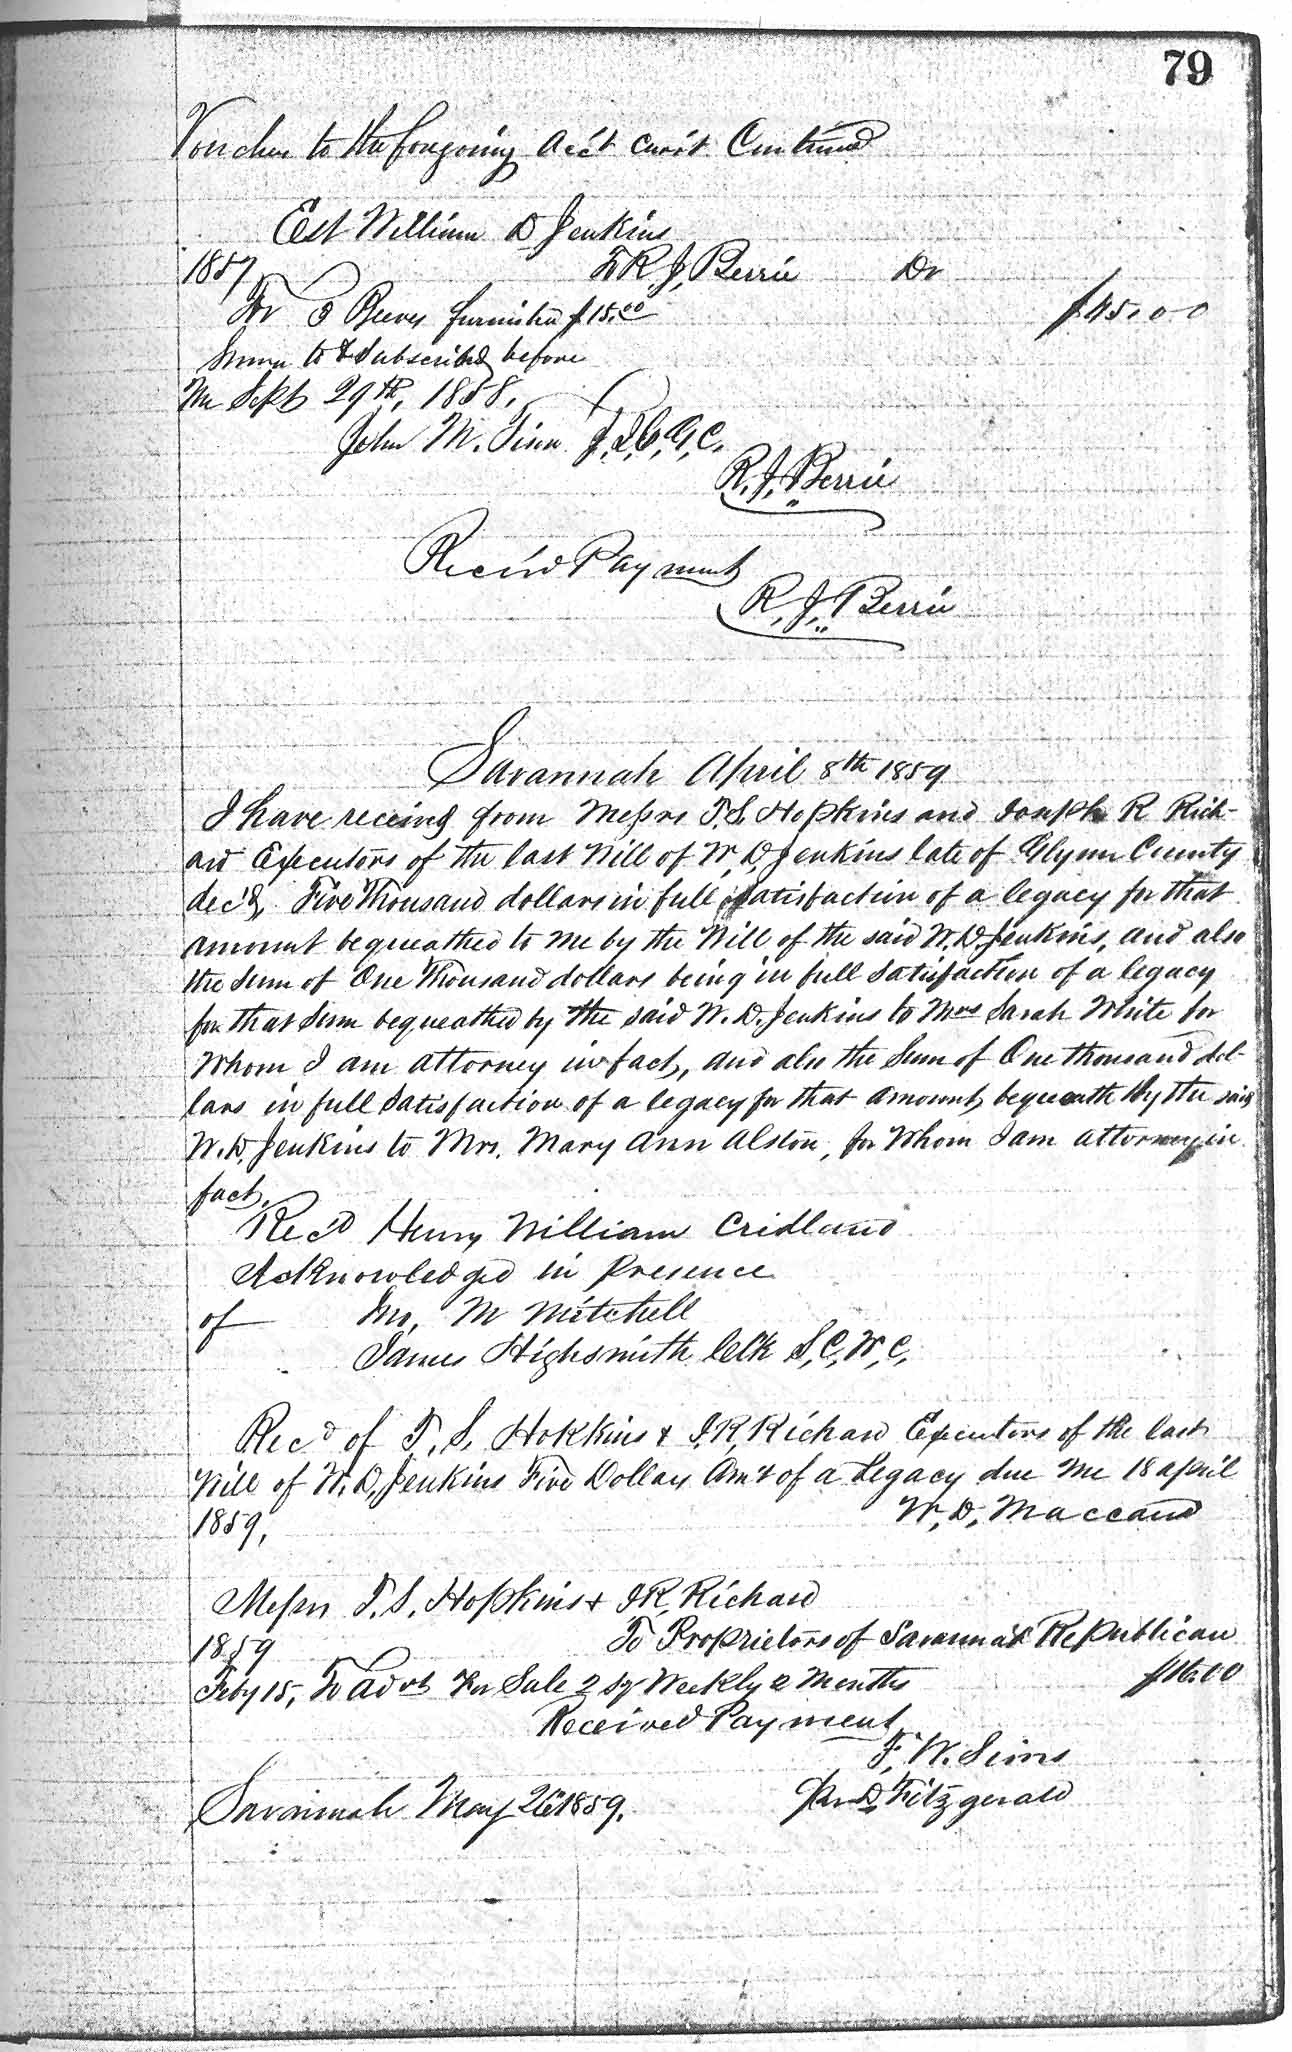 79
Voucher to the foregoing acc't curr't Continued
Est William D Jenkins
1857 To R. J. Berrie Dr
For 3 Beeves furnished $15.00 $45.00
Sworn to & Subscribed before
me Sept 29th, 1858,
John M. Tison J.I.C.G.C.
R. J. Berrie
Rec'd Payment
R. J. Berrie
Savannah April 8th 1859
I have received from Messrs T. S. Hopkins and Joseph R Rich-
ard Executors of the last Will of W. D. Jenkins late of Glynn County
dec'd, Five Thousand dollars in full satisfaction of a legacy for that
amount bequeathed to me by the Will of the said W. D. Jenkins, and also
the Sum of One Thousand dollars being in full satisfaction of a legacy
for that Sum bequeathed by the said W. D. Jenkins to Mrs Sarah White for
Whom I am attorney in fact, and also the Sum of One thousand dol-
lars in full satisfaction of a legacy for that amount, bequeath by the said
W. D. Jenkins to Mrs. Mary Ann Alston, for Whom I am attorney in
fact.
Rec'd Henry William Cridland
Acknowledged in presence
of Jno, M Mitchell
James Highsmith Clk S, C, W, C,
Rec'd of T. S. Hokkins & J. R. Richard Executors of the last
Will of W. D. Jenkins Five Dollars Am't of a Legacy due me 18 april
1859, W, D, Maccaud
Messrs T. S. Hopkins & J R, Richard
1859 To Proprietors of Savannah Republican
Feby 15, To advt Ex Sale 2 sqr Weekly 2 Months $16.00
Received Payment
F. W. Sims
Per D, Fitzgerald
Savannah May 26 1859.